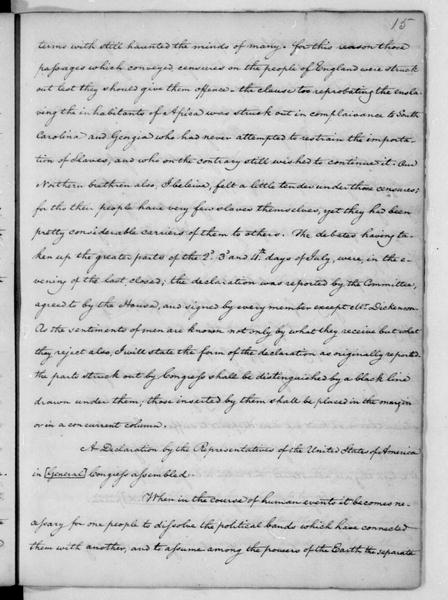 15
terms with still haunted the minds of many. for this reason those
passages which conveyed censures on the people of England were struck
out lest they should give them offence. the clause too reprobating the ensla-
ving the inhabitants of Africa was struck out in complaisance to South
Carolina and Georgia who had never attempted to restrain the importa-
tion of slaves, and who on the contrary still wished to continue it. Our
Northern brethren also, I beleive, felt a little tender under those censures;
for tho their people have very few slaves themselves, yet they had been
pretty considerable carriers of them to others. The debates having ta-
ken up the greater parts of the 2d. 3d and 4th. days of July, were, in the e-
vening of the last, closed; the declaration was reported by the Committee,
agreed to by the House, and signed by every member except Mr. Dickenson.
As the sentiments of men are known not only by what they receive but what
they reject also, I will state the form of the declaration as originally reported.
the parts struck out by Congress shall be distinguished by a black line
drawn under them; those inserted by them shall be placed in the margin
or in a concurrent column.
A Declaration by the Representatives of the United States of America
in [General] Congress assembled.
When in the course of human events it becomes ne-
cessary for one people to dissolve the political bands which have connected
them with another, and to assume among the powers of the Earth the separate